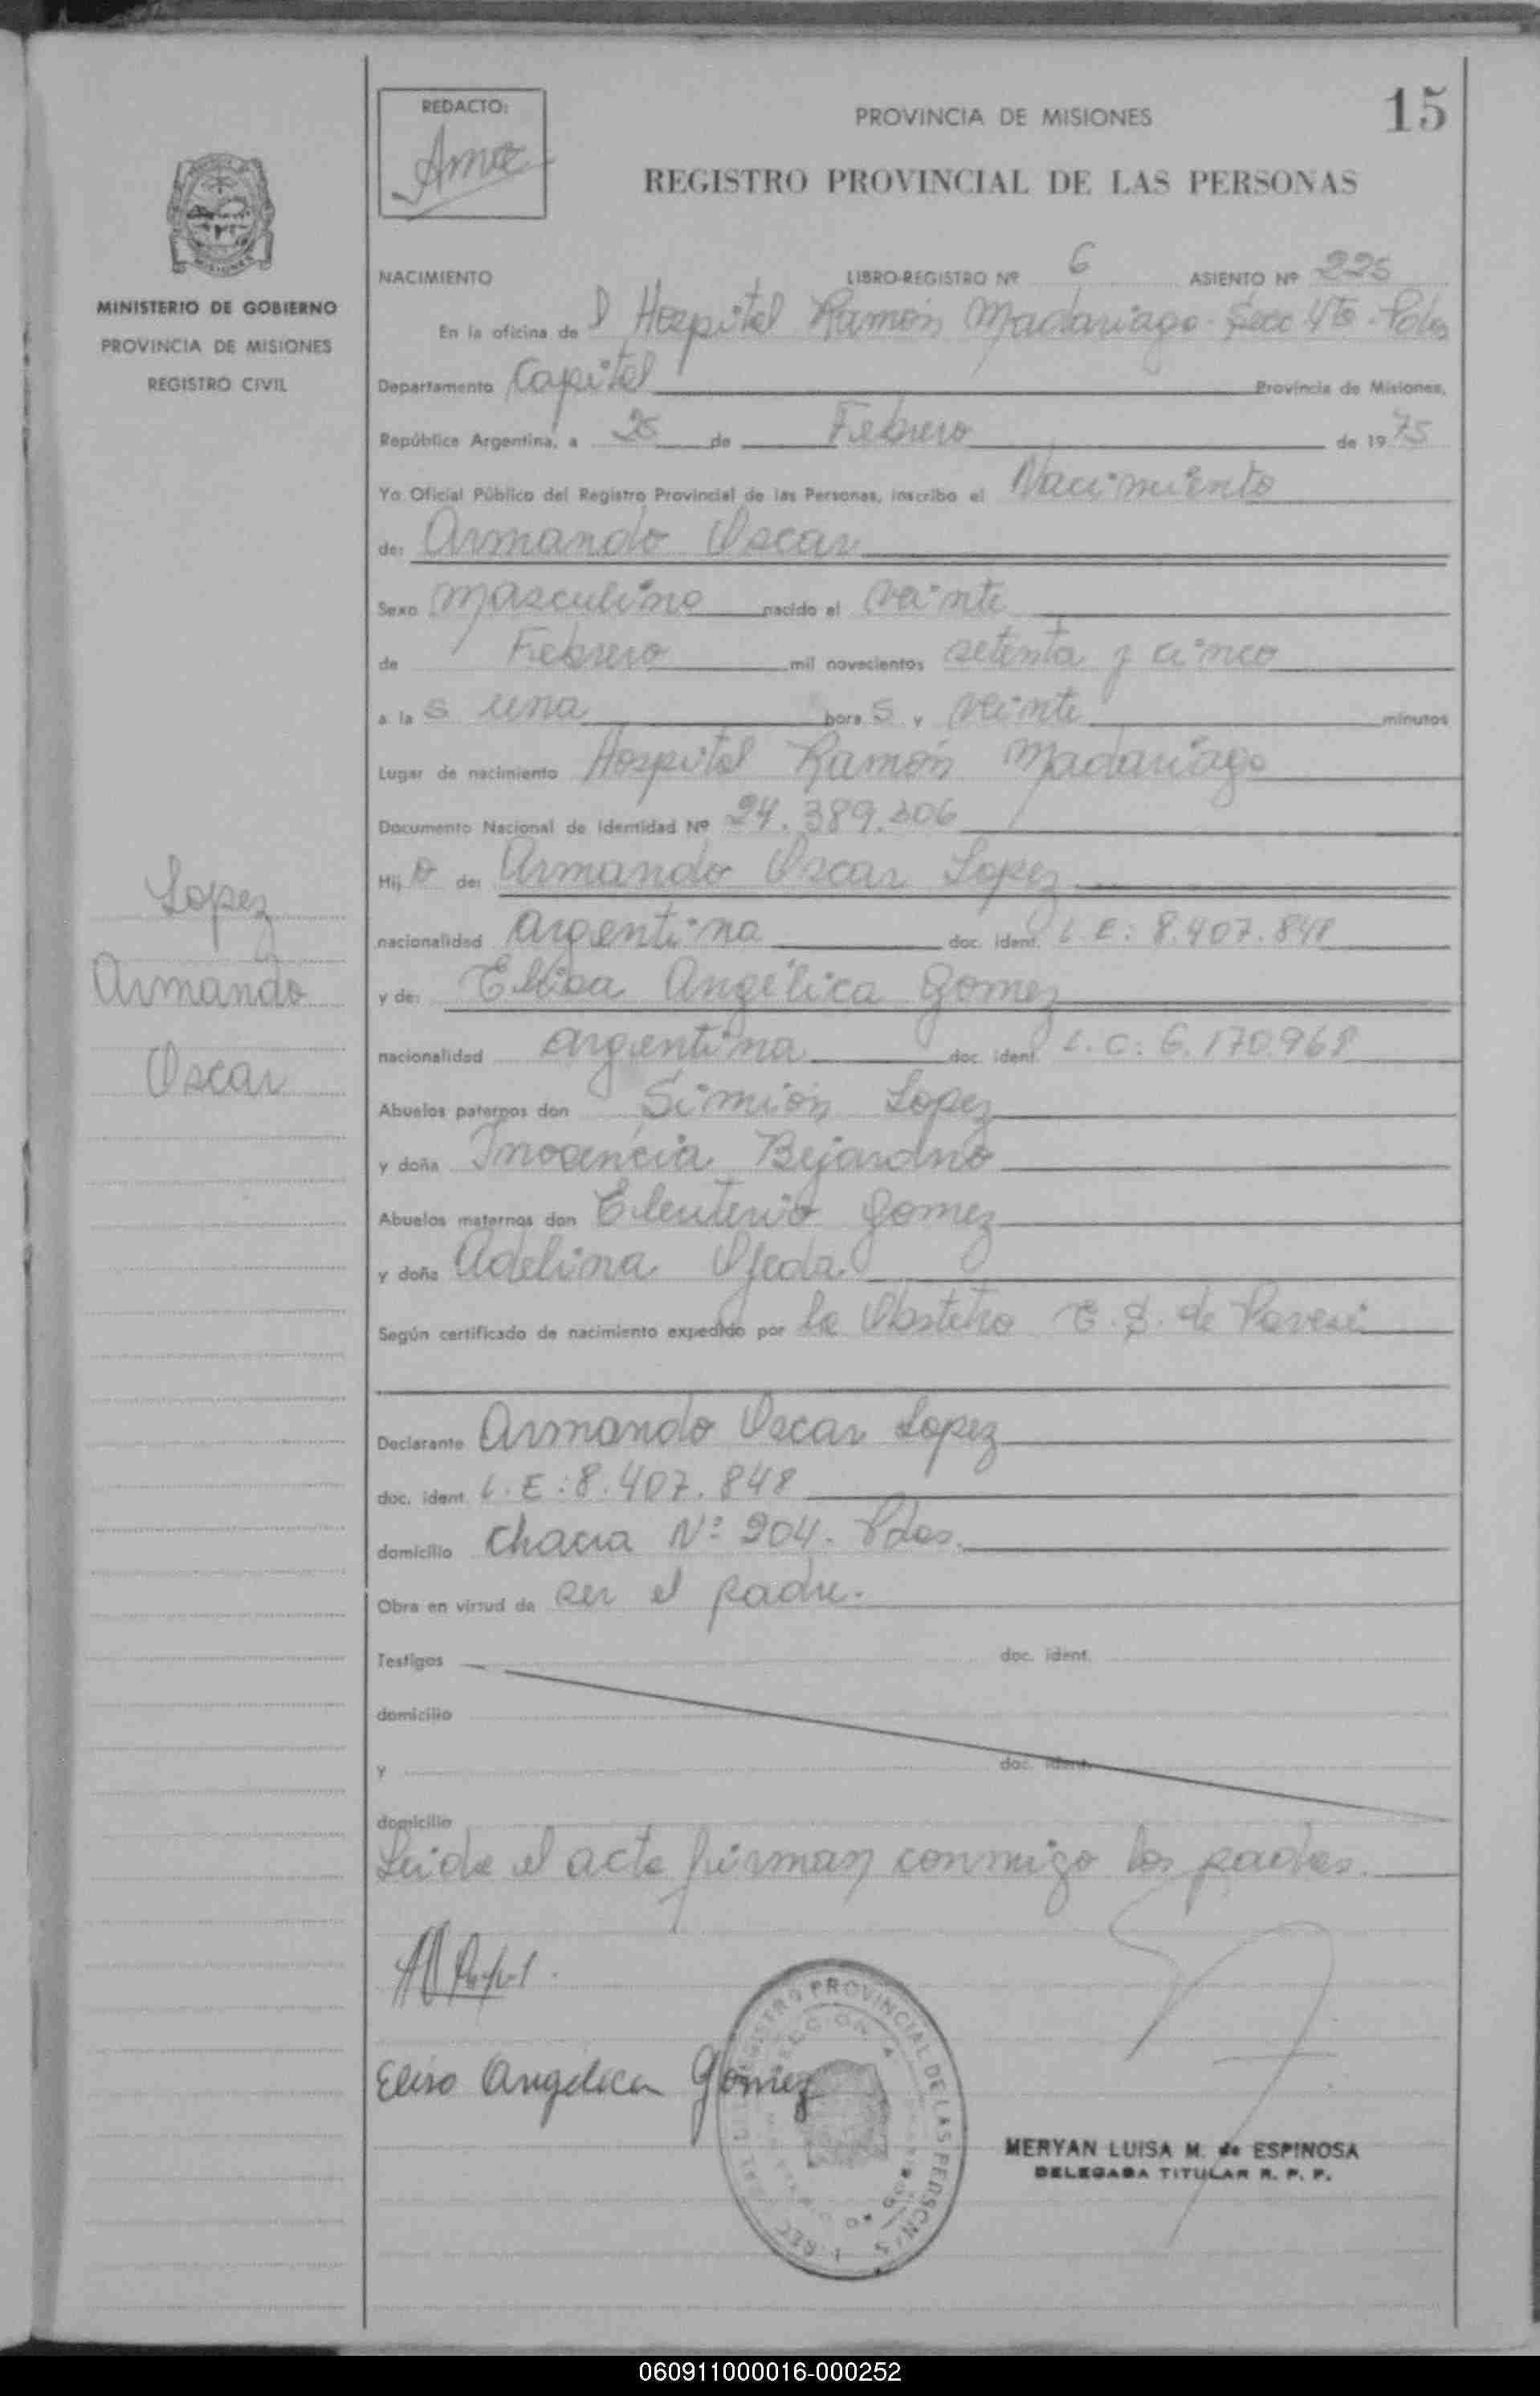 REDACTO:
PROVINCIA DE MISIONES
15
REGISTRO PROVINCIAL DE LAS PERSONAS
MINISTERIO DE GOBIERNO
PROVINCIA DE MISIONES
REGISTRO CIVIL
NACIMIENTO LIBRO-REGISTRO Nº 6 ASIENTO Nº 225
En la oficina del Hospital Ramón Madariaga - Secc 4ta - Pdas
Departamento Capital Provincia de Misiones,
República Argentina, a 25 de Febrero de 1975
Yo Oficial Público del Registro Provincial de las Personas, inscribo el Nacimiento
de: Armando Oscar
Sexo masculino nacido el veinte
de Febrero mil novecientos setenta y cinco
a las una horas y veinte minutos
Lugar de nacimiento Hospital Ramón Madariaga
Documento Nacional de Identidad Nº 24.389.306
Hijo de: Armando Oscar Lopez
nacionalidad argentina doc. ident. L.E: 8.407.848
y de: Elisa Angélica Gomez
nacionalidad argentina doc. ident. L.C: 6.170.968
Abuelos paternos don Simión Lopez
y doña Inocencia Bejarano
Abuelos maternos don Eleuterio Gomez
y doña Adelina Ojeda
Según certificado de nacimiento expedido por la Obstetra E. S. de Pavesi
Declarante Armando Oscar Lopez
doc. ident. L.E: 8.407.848
domicilio Chacra Nº 204. Pdas.
Obra en virtud de ser el padre.
Testigos doc. ident.
domicilio
y doc. ident.
domicilio
Leida el acta firman conmigo los padres.
Lopez
Armando
Oscar
Elisa Angelica Gomez
REGISTRO PROVINCIAL DE LAS PERSONAS
MERYAN LUISA M. de ESPINOSA
DELEGADA TITULAR R. P. P.
060911000016-000252